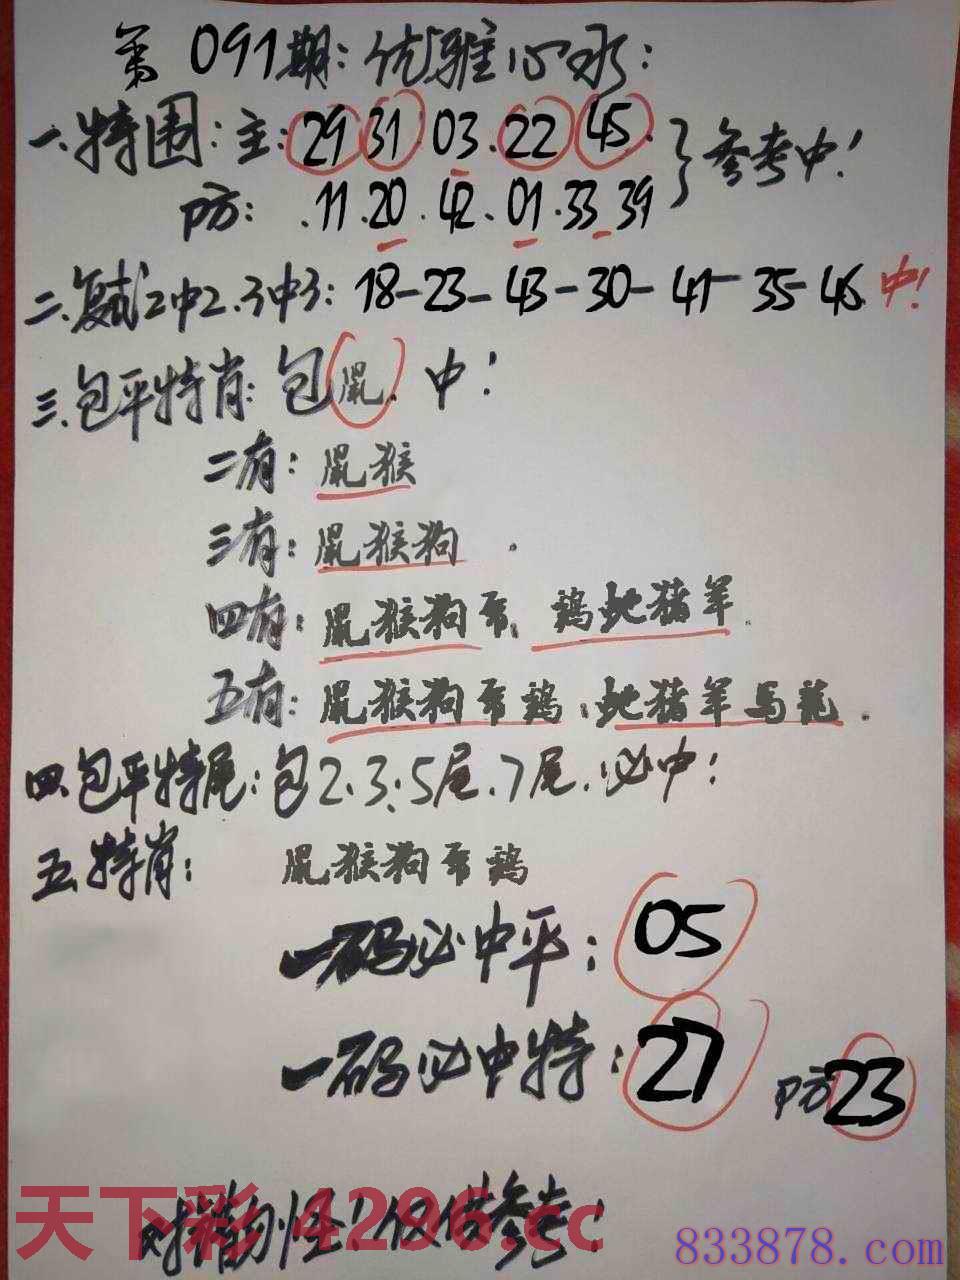 第091期:优雅心水:
一.特围:主:29 31.03.22 45.}参考中!
防:.11.20.42.01.33 39
二.复试2中2.3中3:18-23-43-30-41-35-46 中!
三.包平特肖:包鼠.中!
二有:鼠猴
三有:鼠猴狗.
四有:鼠猴狗 鸡蛇猪羊.
五有:鼠猴狗 鸡.蛇猪羊马龙.
四.包平特尾:包2.3.5尾.7尾.必中!
五特肖:鼠猴狗 鸡
一码必中平:05
一码必中特:27 防23
仅供参考!
天下彩 4296.cc
833878.com